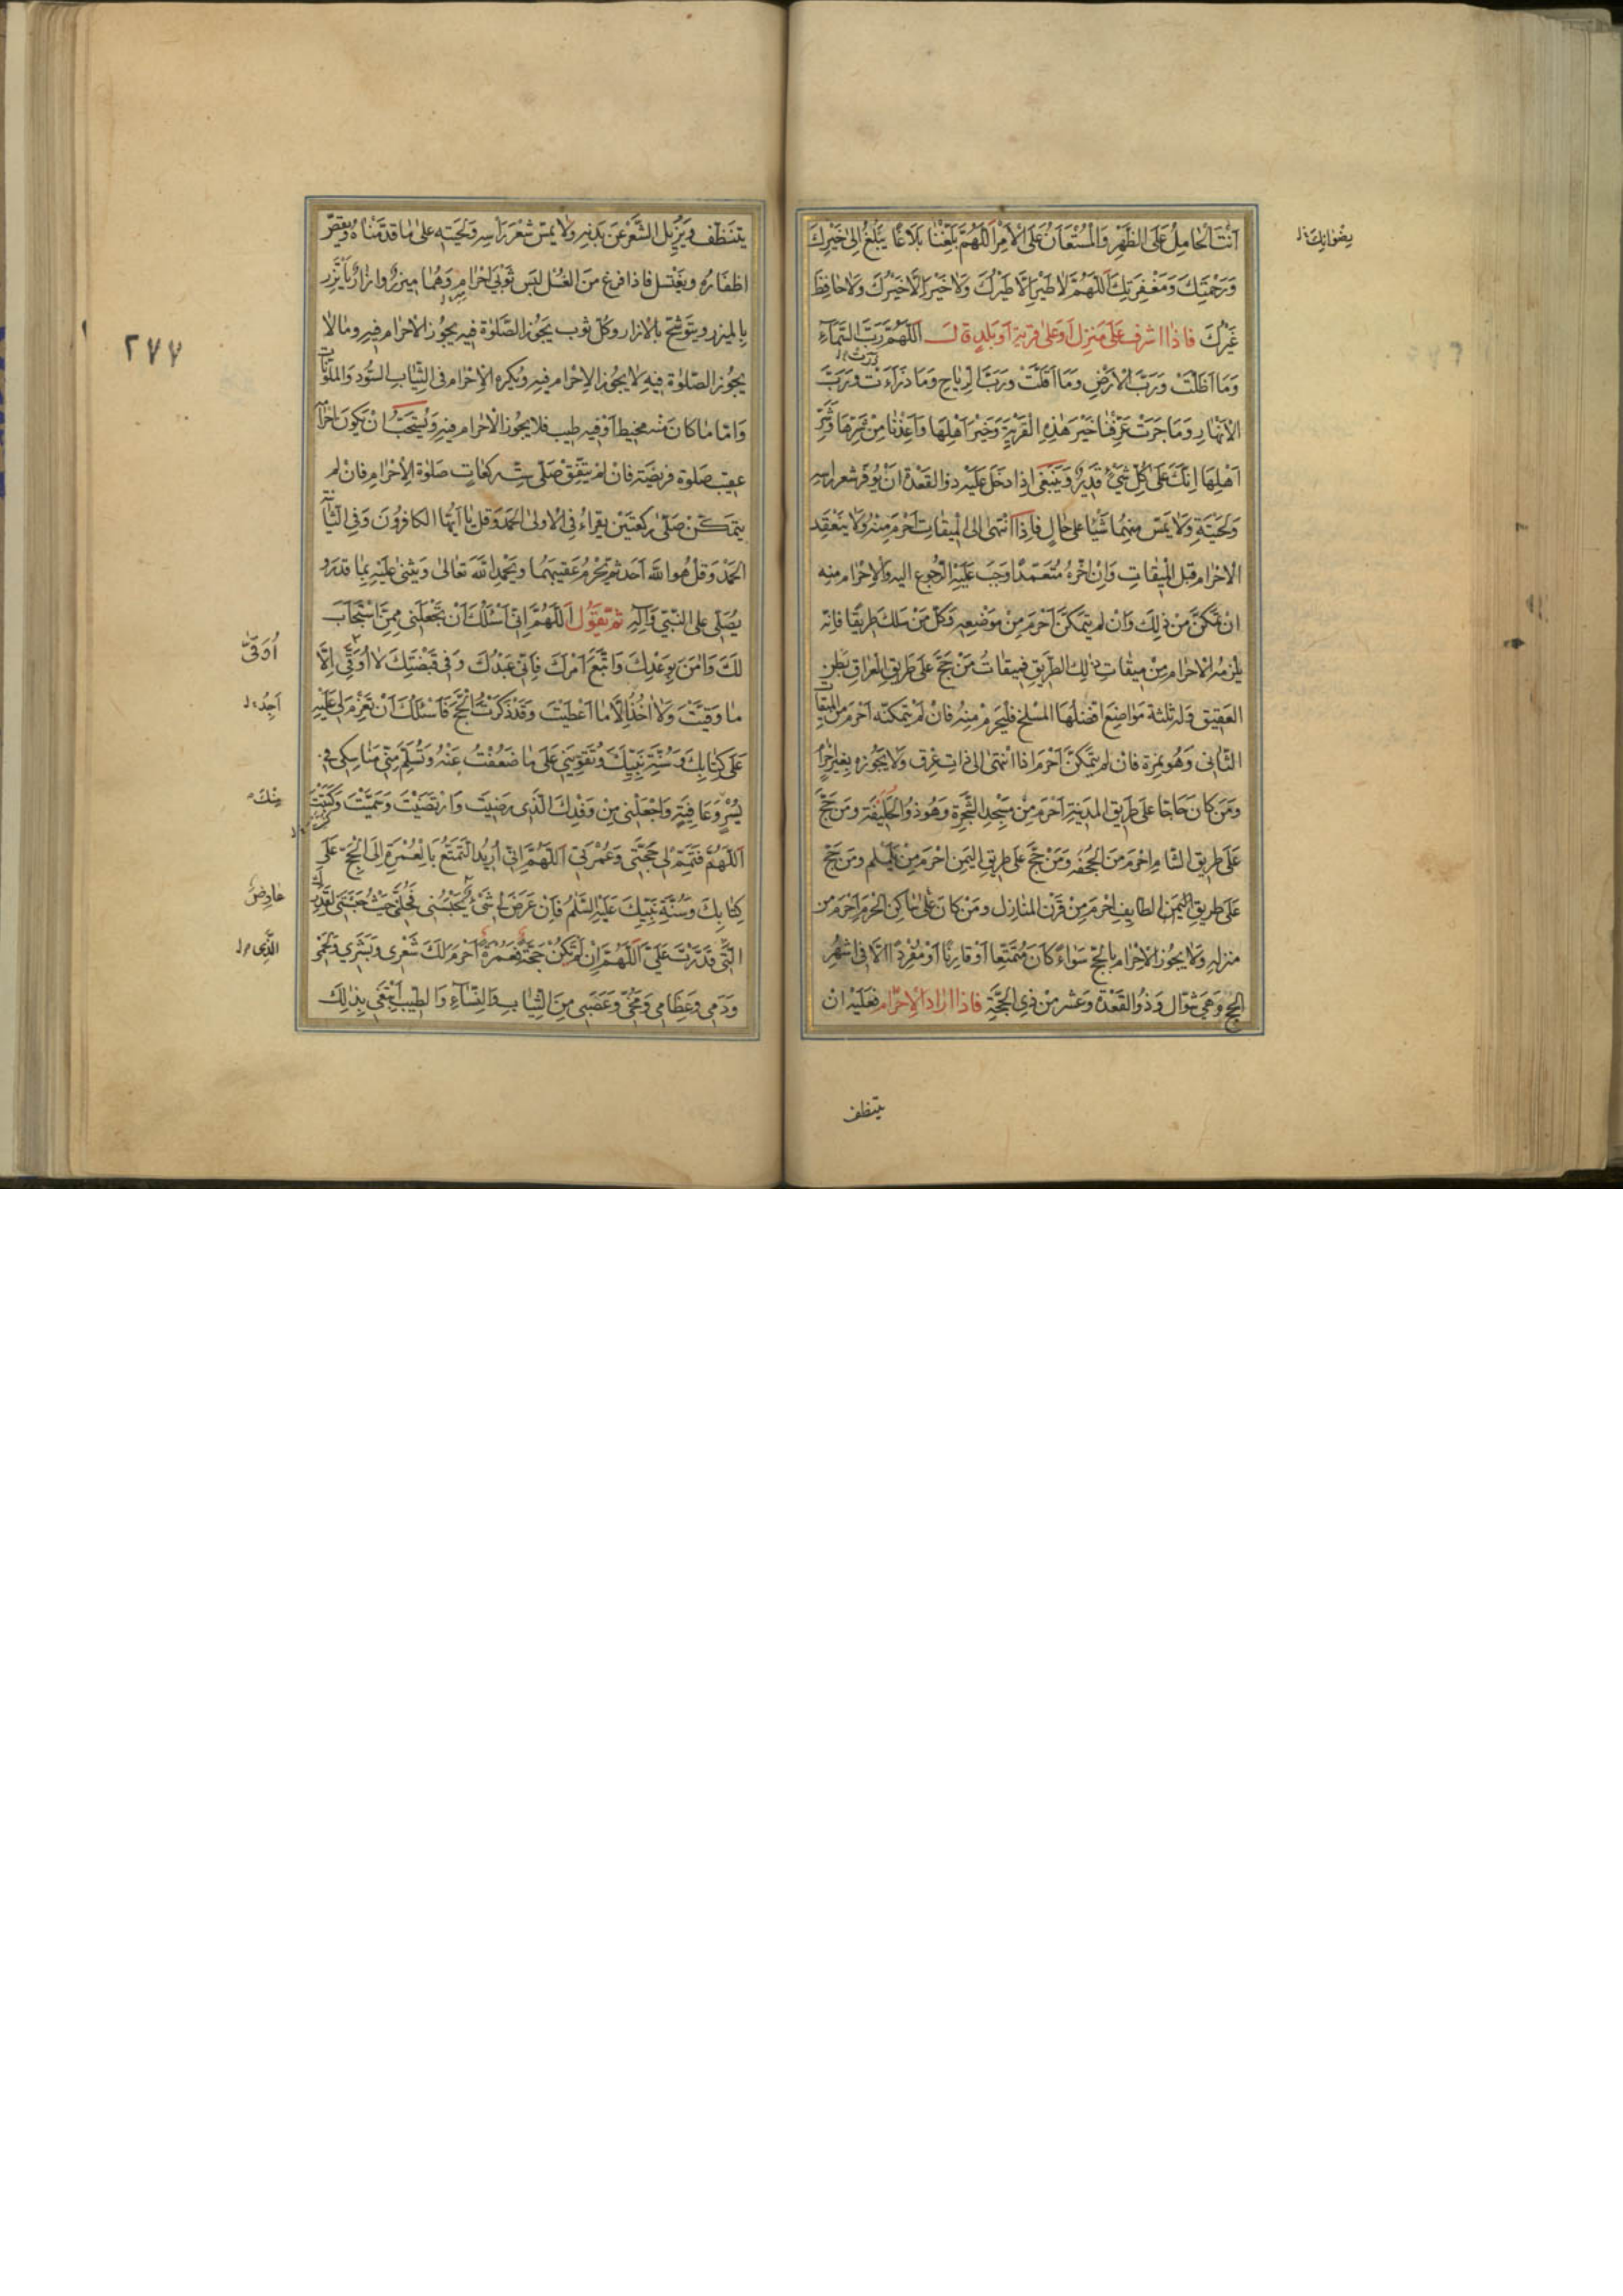 اَنْتَ الحامِلُ عَلَى الظَّهْرِ وَالمُسْتَعانُ عَلَى الاَمْرِ اَللّهُمَّ بَلِّغْنا بَلاغًا يَبْلُغُ اِلى خَيْرِكَ
رِضْوانِكَ
وَرَحْمَتِكَ وَمَغْفِرَتِكَ اَللّهُمَّ لا طَيْرَ اِلّا طَيْرُكَ وَلا خَيْرَ اِلّا خَيْرُكَ وَلا حافِظَ
غَيْرُكَ فاذا اشرف عَلى مَنزِل اَو عَلى قرية اَو بَلدٍ قالَ اَللّهُمَّ رَبَّ السَّماءِ
وَما اَظَلَّتْ وَرَبَّ الاَرْضِ وَما اَقَلَّتْ وَرَبَّ الرِياحِ وَما ذَرَاَتْ وَرَبَّ
الاَنْهارِ وَما جَرَتْ عَرِّفْنا خَيْرَ هَذِهِ القَرْيَةِ وَخَيْرَ اَهْلِها وَاَعِذْنا مِنْ شَرِّها وَشَرِّ
اَهْلِها اِنَّكَ عَلى كُلِّ شَيْءٍ قَديرٌ وَيَنْبَغى اِذا دَخَلَ عَلَيْهِ ذوالقَعْدة اَنْ يُوَفِّرَ شعر راسِهِ
وَلحْيَتِهِ وَلا يَمَسّ مِنهُما شَيْئا على حالٍ فَاِذا انْتهى الى المِيقاتِ اَحْرَمَ مِنْهُ وَلا يَنعَقِد
الاحْرام قَبل المِيقاتِ وَاِنْ اَخَّرهُ مُتَعَمّدًا وَجَبَ عَلَيْهِ الرّجُوع اليه والاِحْرام مِنه
ان تمكَّنَ مِنْ ذلِكَ وَانْ لم يَتَمكَّنْ اَحْرَمَ مِنْ مَوْضِعِهِ وَكلّ مَنْ سَلَكَ طَريقًا فانّه
يلْزمُه الاحْرام مِنْ مِيقاتِ ذلِك الطَريق فمِيقاتُ مَنْ حَجَّ عَلى طَريق العِراق بَطن
العَقِيق وَله ثلثة مَواضِعَ اَفضلُها المَسْلخ فليُحرمْ مِنهُ فانْ لَمْ يَتمكنْه اَحْرَمَ من الميقات
الثّانى وَهُو غمرة فانْ لم يَتمَكّنْ اَحْرَمَ اذا انتهى الى ذاتِ عِرق وَلا يَجُوزه بِغَيْر احْرام
وَمَن كانَ حَاجّا عَلى طَريق المَدينَةِ اَحْرَمَ مِنْ مَسْجِد الشَجَرةِ وَهُو ذوالحُلَيْفة وَمَن حَجّ
عَلَى طَريق الشام اَحْرَمَ مِنَ الجُحْفه وَمَنْ حَجَّ عَلى طَريق اليَمَن اَحْرَمَ مِنْ يَلَمْلَم ومَن حَجّ
عَلى طَريق الطايِف اَحْرَمَ مِنْ قَرْن المَنازِل ومَنْ كانَ ساكِن الحَرَم اَحْرَمَ مِن
منزلهِ وَلا يجُوز الاِحْرام بالحَجّ سَواءً كانَ مُتَمَتِّعا اَوْ قارِنًا اَوْ مُفْرِدًا الّا فى اَشهُرِ
الحجّ وَهِيَ شوّال وَذُوالقَعْدة وَعَشر مِنْ ذِى الحِجّةِ فاذا ارادَ الاِحْرام فعَلَيْه ان
يتنظف
٢٧٧
يَتنَظّف وَيُزِيل الشَّعْرَ عَنْ بَدَنِهِ وَلا يَمسّ شعْر رَاسِه وَلحْيَتِهِ عَلى ما قدَّمْناهُ ويقصّ
اظفَاره ويَغْتسل فاذا فرغ مِنَ الغُسْل لبسَ ثَوْبَيْ اِحْرامِهِ وَهُما مِيزر وازار يَأتَزر
بِالمِيزر ويَتوَشَّح بالازار وكلّ ثوب يَجُوز الصَّلوة فيهِ يجُوز الاحْرام فيهِ ومالا
يجُوز الصَّلوة فيهِ لا يجُوز الاِحْرام فيهِ ويُكره الاِحْرام فى الثِّيابِ السُّود والملوّنات
وَامّا ما كان منه مخيطًا اَوْ فيهِ طيب فلا يجُوز الاحْرام فيهِ وَيُسْتَحَبُّ انْ يَكونَ احْرامه
عقِيبَ صَلوة فريضَةٍ فانْ لمْ يتّفِقْ صَلّى سِتّ ركعاتٍ صَلوة الاِحْرامِ فانْ لم
يتمَكنْ صَلّى ركعَتَيْن يقراءُ فى الاولى الحَمْد وقل يا اَيّها الكافِرُونَ وَفى الثّانية
الحَمْد وَقلْ هُوَ اللّه اَحَد ثمّ يُحْرِمُ عَقيبَهُما وَيَحْمِد اللّهَ تَعالى وَيَثنى عَلَيْهِ بِما قدر و
يُصَلّى عَلى النَّبِيّ وَآلِهِ ثمّ يَقولُ اَللّهُمَّ اِنّى اَسْئلُكَ اَنْ تَجْعَلَنى مِمَّنِ اسْتَجابَ
لَكَ وَامَنَ بِوَعْدِكَ وَاتَّبَعَ اَمْرَكَ فَاِنّى عَبْدُكَ وَفى قَبْضَتِكَ لا اُوقى اِلّا
اُوقى
ما وَقَيْتَ وَلا اخُذُ اِلّا ما اَعْطَيْتَ وَقَدْ ذَكَرْتَ الحَجَّ فَاَسْئلُكَ اَنْ تَعْزِمَ لى عَلَيْهِ
اَجِدُ
عَلَى كِتابِكَ وَسُنَّةِ نَبِيِّكَ وَتُقَوِّيَنى عَلى ما ضَعُفْتُ عَنْهُ وَتُسَلِّمَ مِنّى مَناسِكى فى
يُسْرٍ وَعافِيَةٍ وَاجْعَلْنى مِنْ وَفْدِكَ الَّذى رَضِيتَ وَارْتَضَيْتَ وَسَمَّيْتَ وَكَتَبْتَ
مِنْكَ
اَللّهُمَّ فَتَمِّمْ لى حَجَّتى وَعُمْرَتى اَللّهُمَّ اِنّى اُرِيدُ التَّمَتُّعَ بِالعُمْرَةِ اِلَى الحَجِّ عَلَى
كِتابِكَ وَسُنَّةِ نَبِيِّكَ عَلَيْهِ السَّلمُ فَاِنْ عَرَضَ لى شَيْءٌ يَحْبِسُنى فَحُلَّنى حَيْثُ حَبَسْتَنى لِقَدَرِكَ
عارِضٌ
الَّتى قَدَّرْتَ عَلَيَّ اَللّهُمَّ اِنْ لَمْ تَكُنْ حَجَّةً فَعُمْرَةً اَحْرَمَ لَكَ شَعْرى وَبَشَرى وَلَحْمى
الَّذى
وَدَمى وَعِظامى وَمُخّى وَعَصَبى مِنَ الثِّيابِ وَالنِّساءِ وَالطِّيبِ اَبْتَغى بِذلِكَ